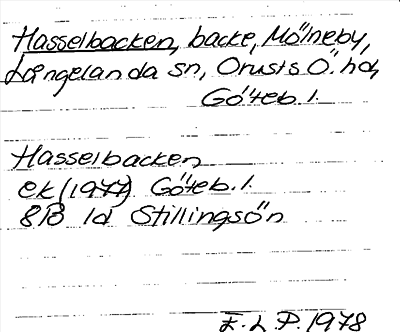 Hasselbacken, backe, Mölneby,
Långelanda sn, Orusts Ö. hd,
Göteb. l.
Hasselbacken
ek (1977) Göteb. l.
8B 1d Stillingsön
E. L. P. 1978